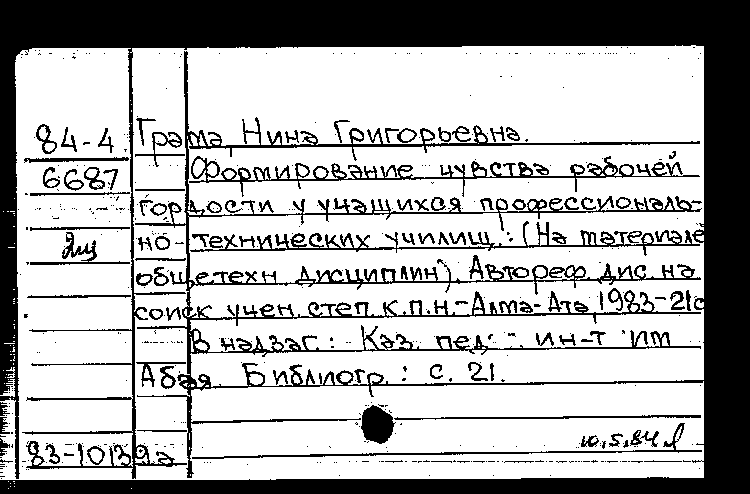 84-4 Грама, Нина Григорьевна.
6687 Формирование чувства рабочей
гордости у учащихся профессиональ-
но-технических училищ : (На материале
общетехн. дисциплин). Автореф. дис. на
соиск. учен. степ. к.п.н. - Алма-Ата, 1983-21с
В надзаг.: Каз. пед. ин-т им
Абая. Библиогр.: с. 21.
10.5.84
83-10139а